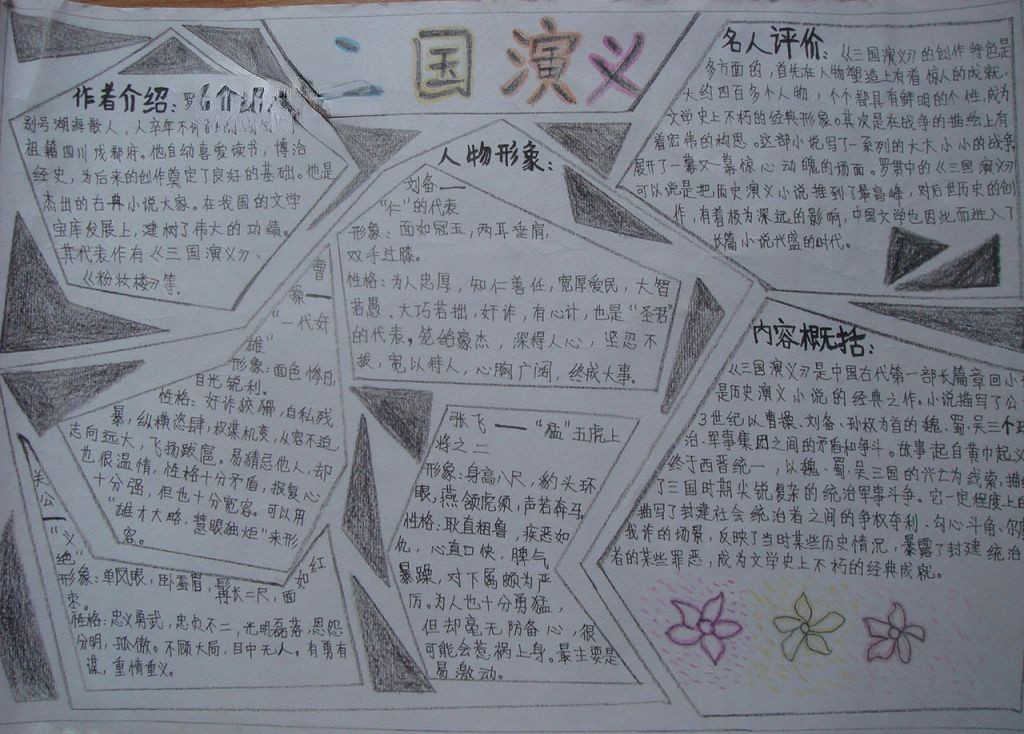 三国演义
作者介绍:罗
别号湖海散人,人卒年不
祖籍四川成都府。他自幼喜爱读书,博洽
经史,为后来的创作奠定了良好的基础。他是
杰出的古典小说大家。在我国的文学
宝库发展上,建树了伟大的功绩。
其代表作有《三国演义》、
《粉妆楼》等
人物形象:
刘备——
“仁”的代表
形象:面如冠玉,两耳垂肩,
双手过膝。
性格:为人忠厚,知仁善任,宽厚爱民,大智
若愚、大巧若拙,奸诈,有心计,也是“圣君”
的代表,笼络豪杰,深得人心,坚忍不
拔,宽以待人,心胸广阔,终成大事。
曹
操——
“一代奸
雄”
形象:面色惨白,
目光锐利。
性格:奸诈狡猾,自私残
暴,纵横恣肆,权谋机变,从容不迫,
志向远大,飞扬跋扈。易猜忌他人,却
也很温情,性格十分矛盾,报复心
十分强,但也十分宽容。可以用
“雄才大略,慧眼独炬”来形
容。
关
公——
“义
绝”
形象:单凤眼,卧蚕眉,髯长二尺,面如红
枣。
性格:忠义勇武,忠贞不二,光明磊落,恩怨
分明,孤傲。不顾大局,目中无人。有勇有
谋,重情重义。
张飞——“猛”五虎上
将之二
形象:身高八尺,豹头环
眼,燕颔虎须,声若奔马。
性格:耿直粗鲁,疾恶如
仇,心直口快,脾气
暴躁,对下属颇为严
厉。为人也十分勇猛,
但却毫无防备心,很
可能会惹祸上身。最主要是
易激动。
名人评价:《三国演义》的创作特色是
多方面的,首先在人物塑造上有着惊人的成就,
大约四百多个人物,个个都具有鲜明的个性,成为
文学史上不朽的经典形象。其次是在战争的描绘上有
着宏伟的构思。这部小说写了一系列的大大小小的战争,
展开了一幕又一幕惊心动魄的场面。罗贯中的《三国演义》
可以说是把历史演义小说推到了最高峰,对后世历史的创
作,有着极为深远的影响,中国文学也因此而进入了
长篇小说兴盛的时代。
内容概括:
《三国演义》是中国古代第一部长篇章回小
是历史演义小说的经典之作。小说描写了公
3世纪以曹操、刘备、孙权为首的魏、蜀、吴三个政
治、军事集团之间的矛盾和争斗。故事起自黄巾起义
终于西晋统一,以魏、蜀、吴三国的兴亡为线索,描
了三国时期尖锐复杂的统治军事斗争。它一定程度上
描写了封建社会统治者之间的争权夺利、勾心斗角、尔
我诈的场景,反映了当时某些历史情况,暴露了封建统治
者的某些罪恶,成为文学史上不朽的经典成就。